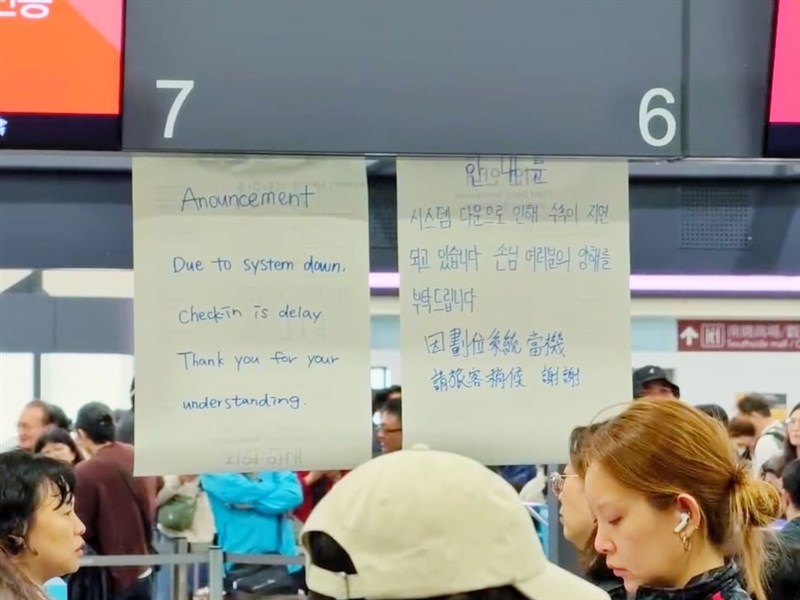 7
6
Anouncement
Due to system down.
Check-in is delay
Thank you for your
understanding.
안내문
시스템 다운으로 인해 수속이 지연
되고 있습니다 손님 여러분의 양해를
부탁드립니다
因劃位系統當機
請旅客稍候 謝謝
Southside mall